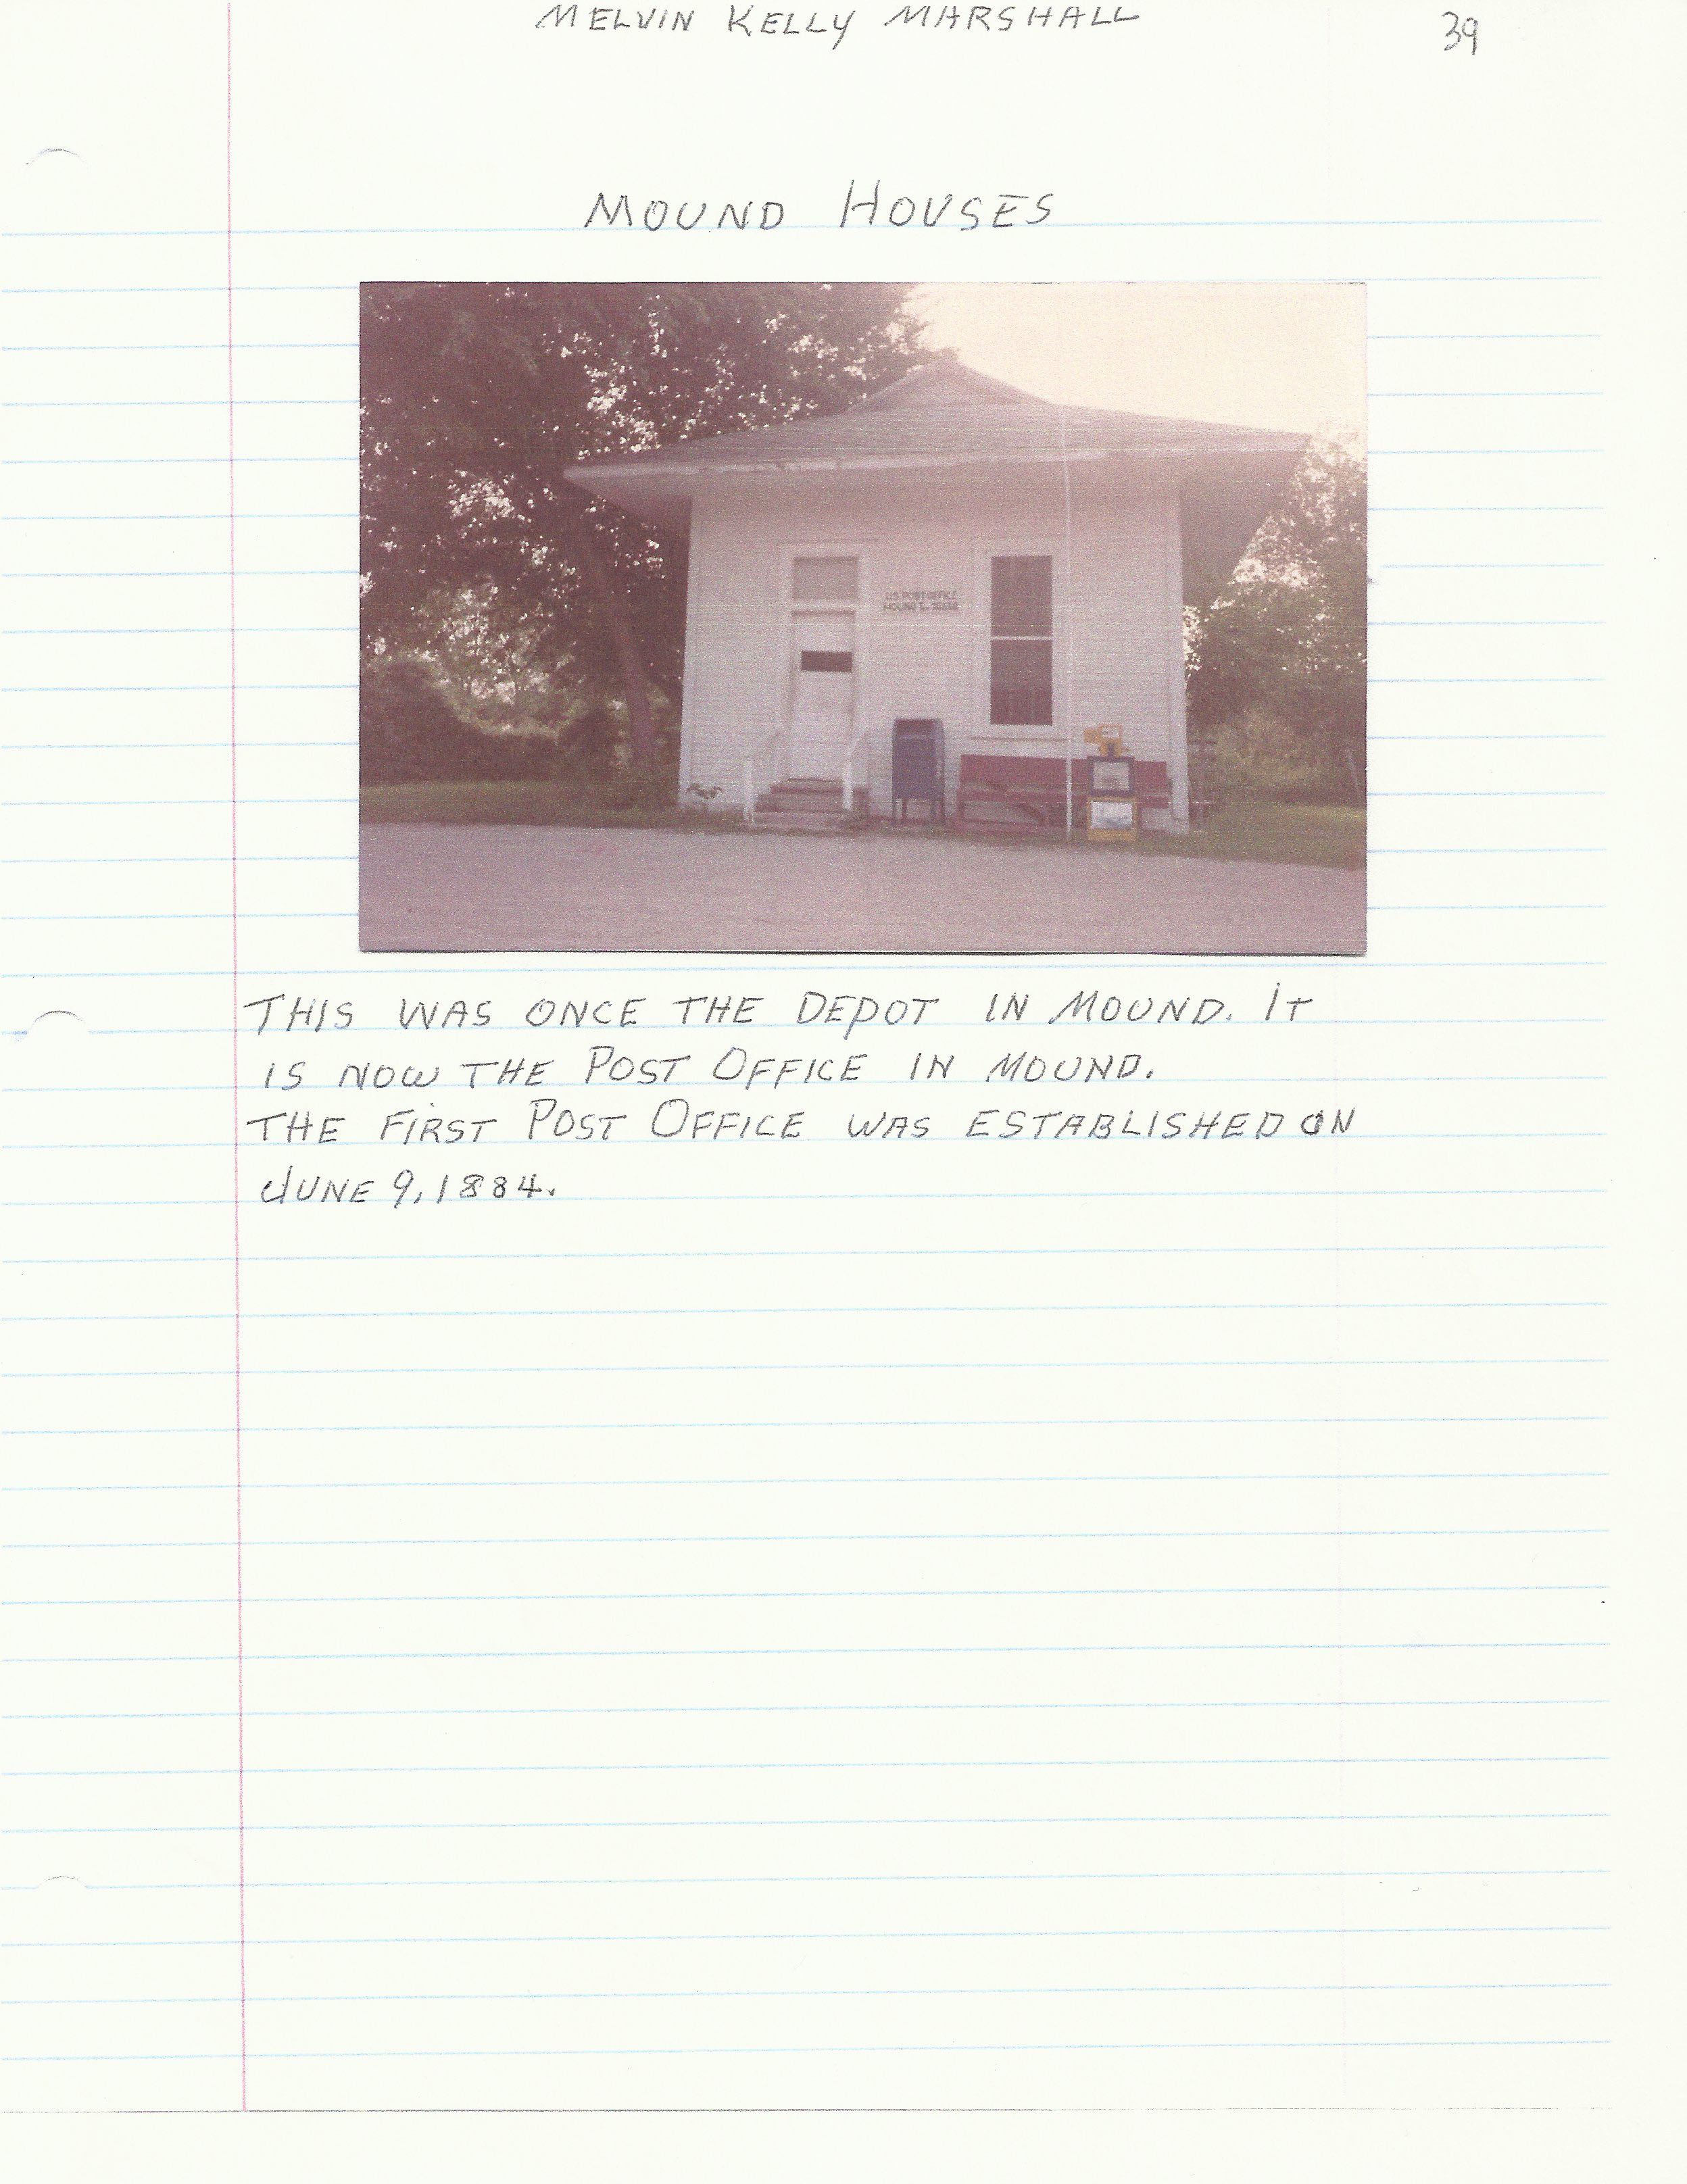 MELVIN KELLY MARSHALL
39
MOUND HOUSES
U.S. POST OFFICE
MOUND
THIS WAS ONCE THE DEPOT IN MOUND. IT
IS NOW THE POST OFFICE IN MOUND.
THE FIRST POST OFFICE WAS ESTABLISHED ON
JUNE 9, 1884.